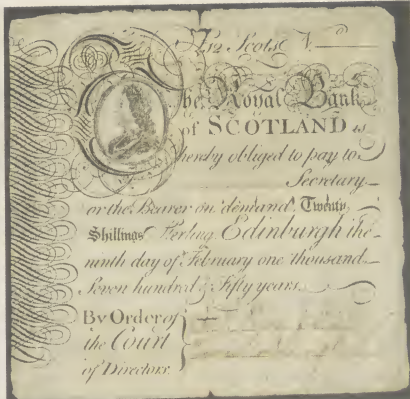 £12 Scots N.º
The Royal Bank
of SCOTLAND is
hereby obliged to pay to
Secretary
or the Bearer on demand Twenty
Shillings Sterling Edinburgh the
ninth day of February one thousand
Seven hundred & Fifty years
By Order of
the Court
of Directors